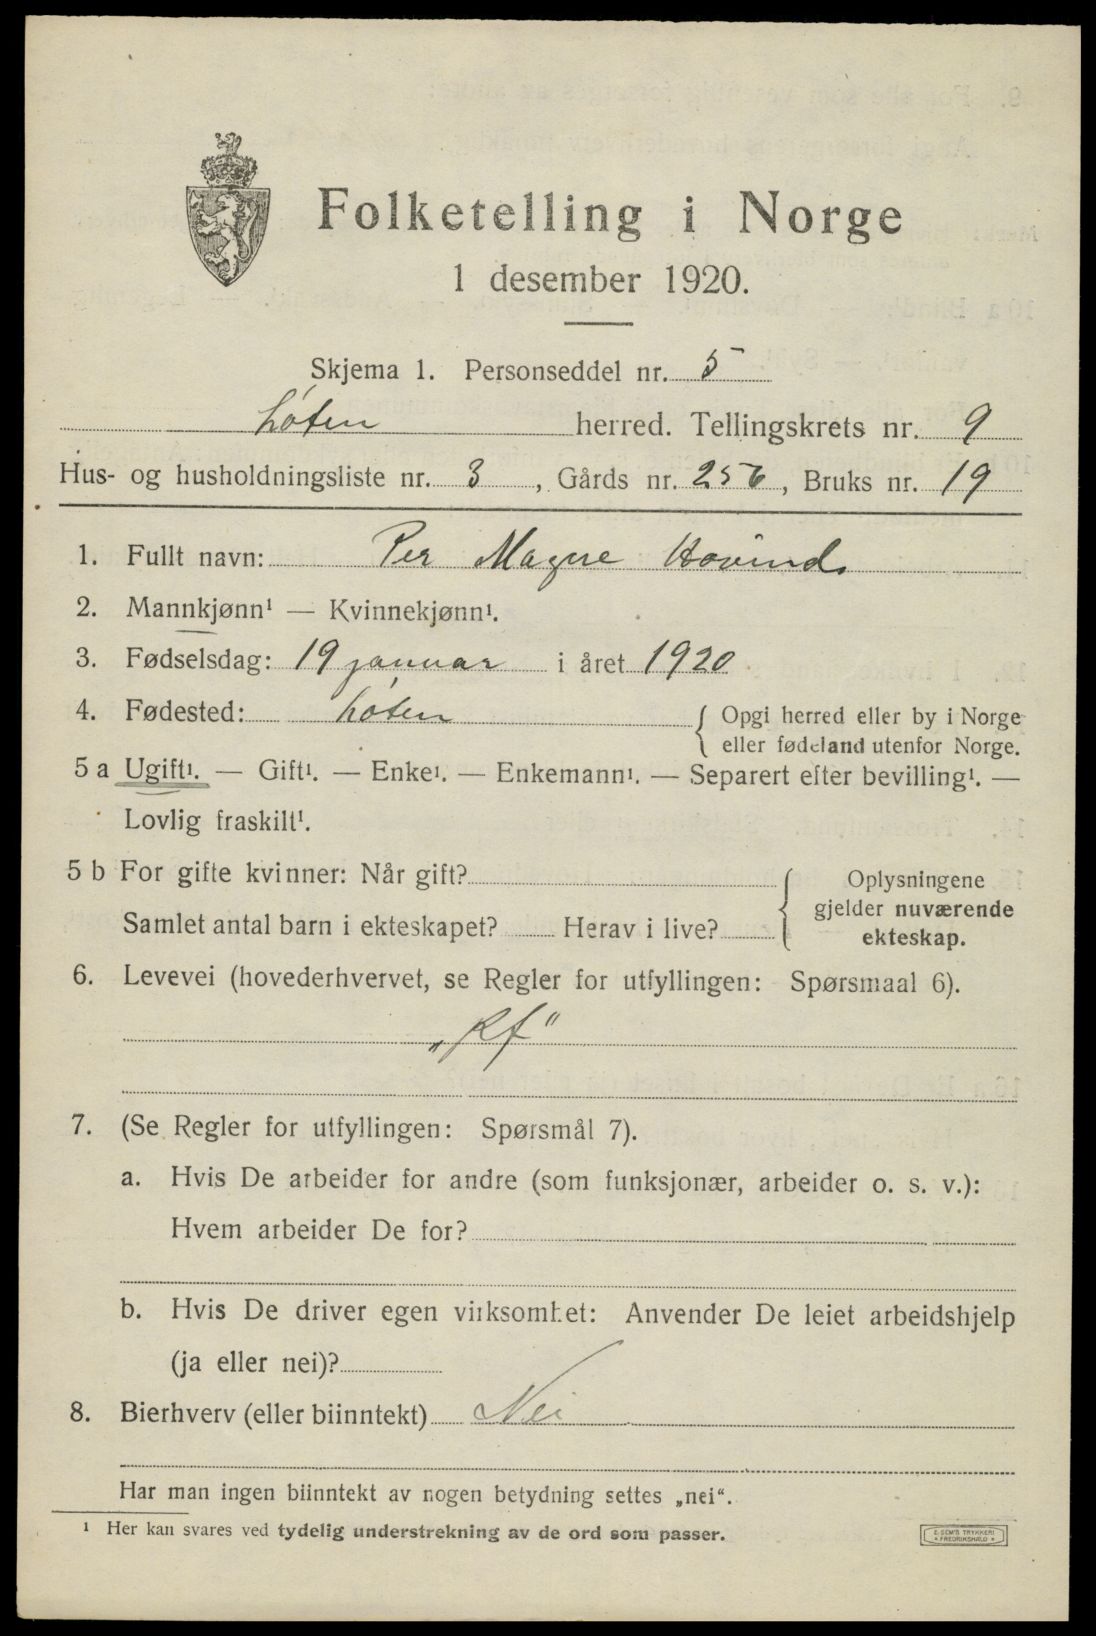 Folketelling i Norge
1 desember 1920.
Skjema 1. Personseddel nr. 5
Løten herred. Tellingskrets nr. 9
Hus- og husholdningsliste nr. 3, Gårds nr. 256, Bruks nr. 19
1. Fullt navn: Per Magne Hovind.
2. Mannkjønn¹ — Kvinnekjønn¹.
3. Fødselsdag: 19 januar i året 1920
4. Fødested: Løten { Opgi herred eller by i Norge
eller fødeland utenfor Norge.
5 a Ugift¹. — Gift¹. — Enke¹. — Enkemann¹. — Separert efter bevilling¹. —
Lovlig fraskilt¹.
5 b For gifte kvinner: Når gift? { Oplysningene
gjelder nuværende
Samlet antal barn i ekteskapet? Herav i live?
ekteskap.
6. Levevei (hovederhvervet, se Regler for utfyllingen: Spørsmaal 6).
„Rf"
7. (Se Regler for utfyllingen: Spørsmål 7).
a. Hvis De arbeider for andre (som funksjonær, arbeider o. s. v.):
Hvem arbeider De for?
b. Hvis De driver egen virksomhet: Anvender De leiet arbeidshjelp
(ja eller nei)?
8. Bierhverv (eller biinntekt) Nei
Har man ingen biinntekt av nogen betydning settes „nei“.
¹ Her kan svares ved tydelig understrekning av de ord som passer.
E. SEM'S TRYKKERI
FREDRIKSHALD